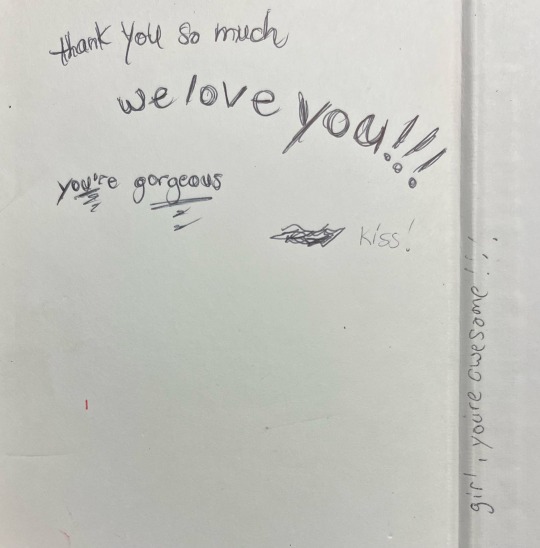 thank you so much
we love you!!!
you're gorgeous
kiss!
girl, youre awesome!!!